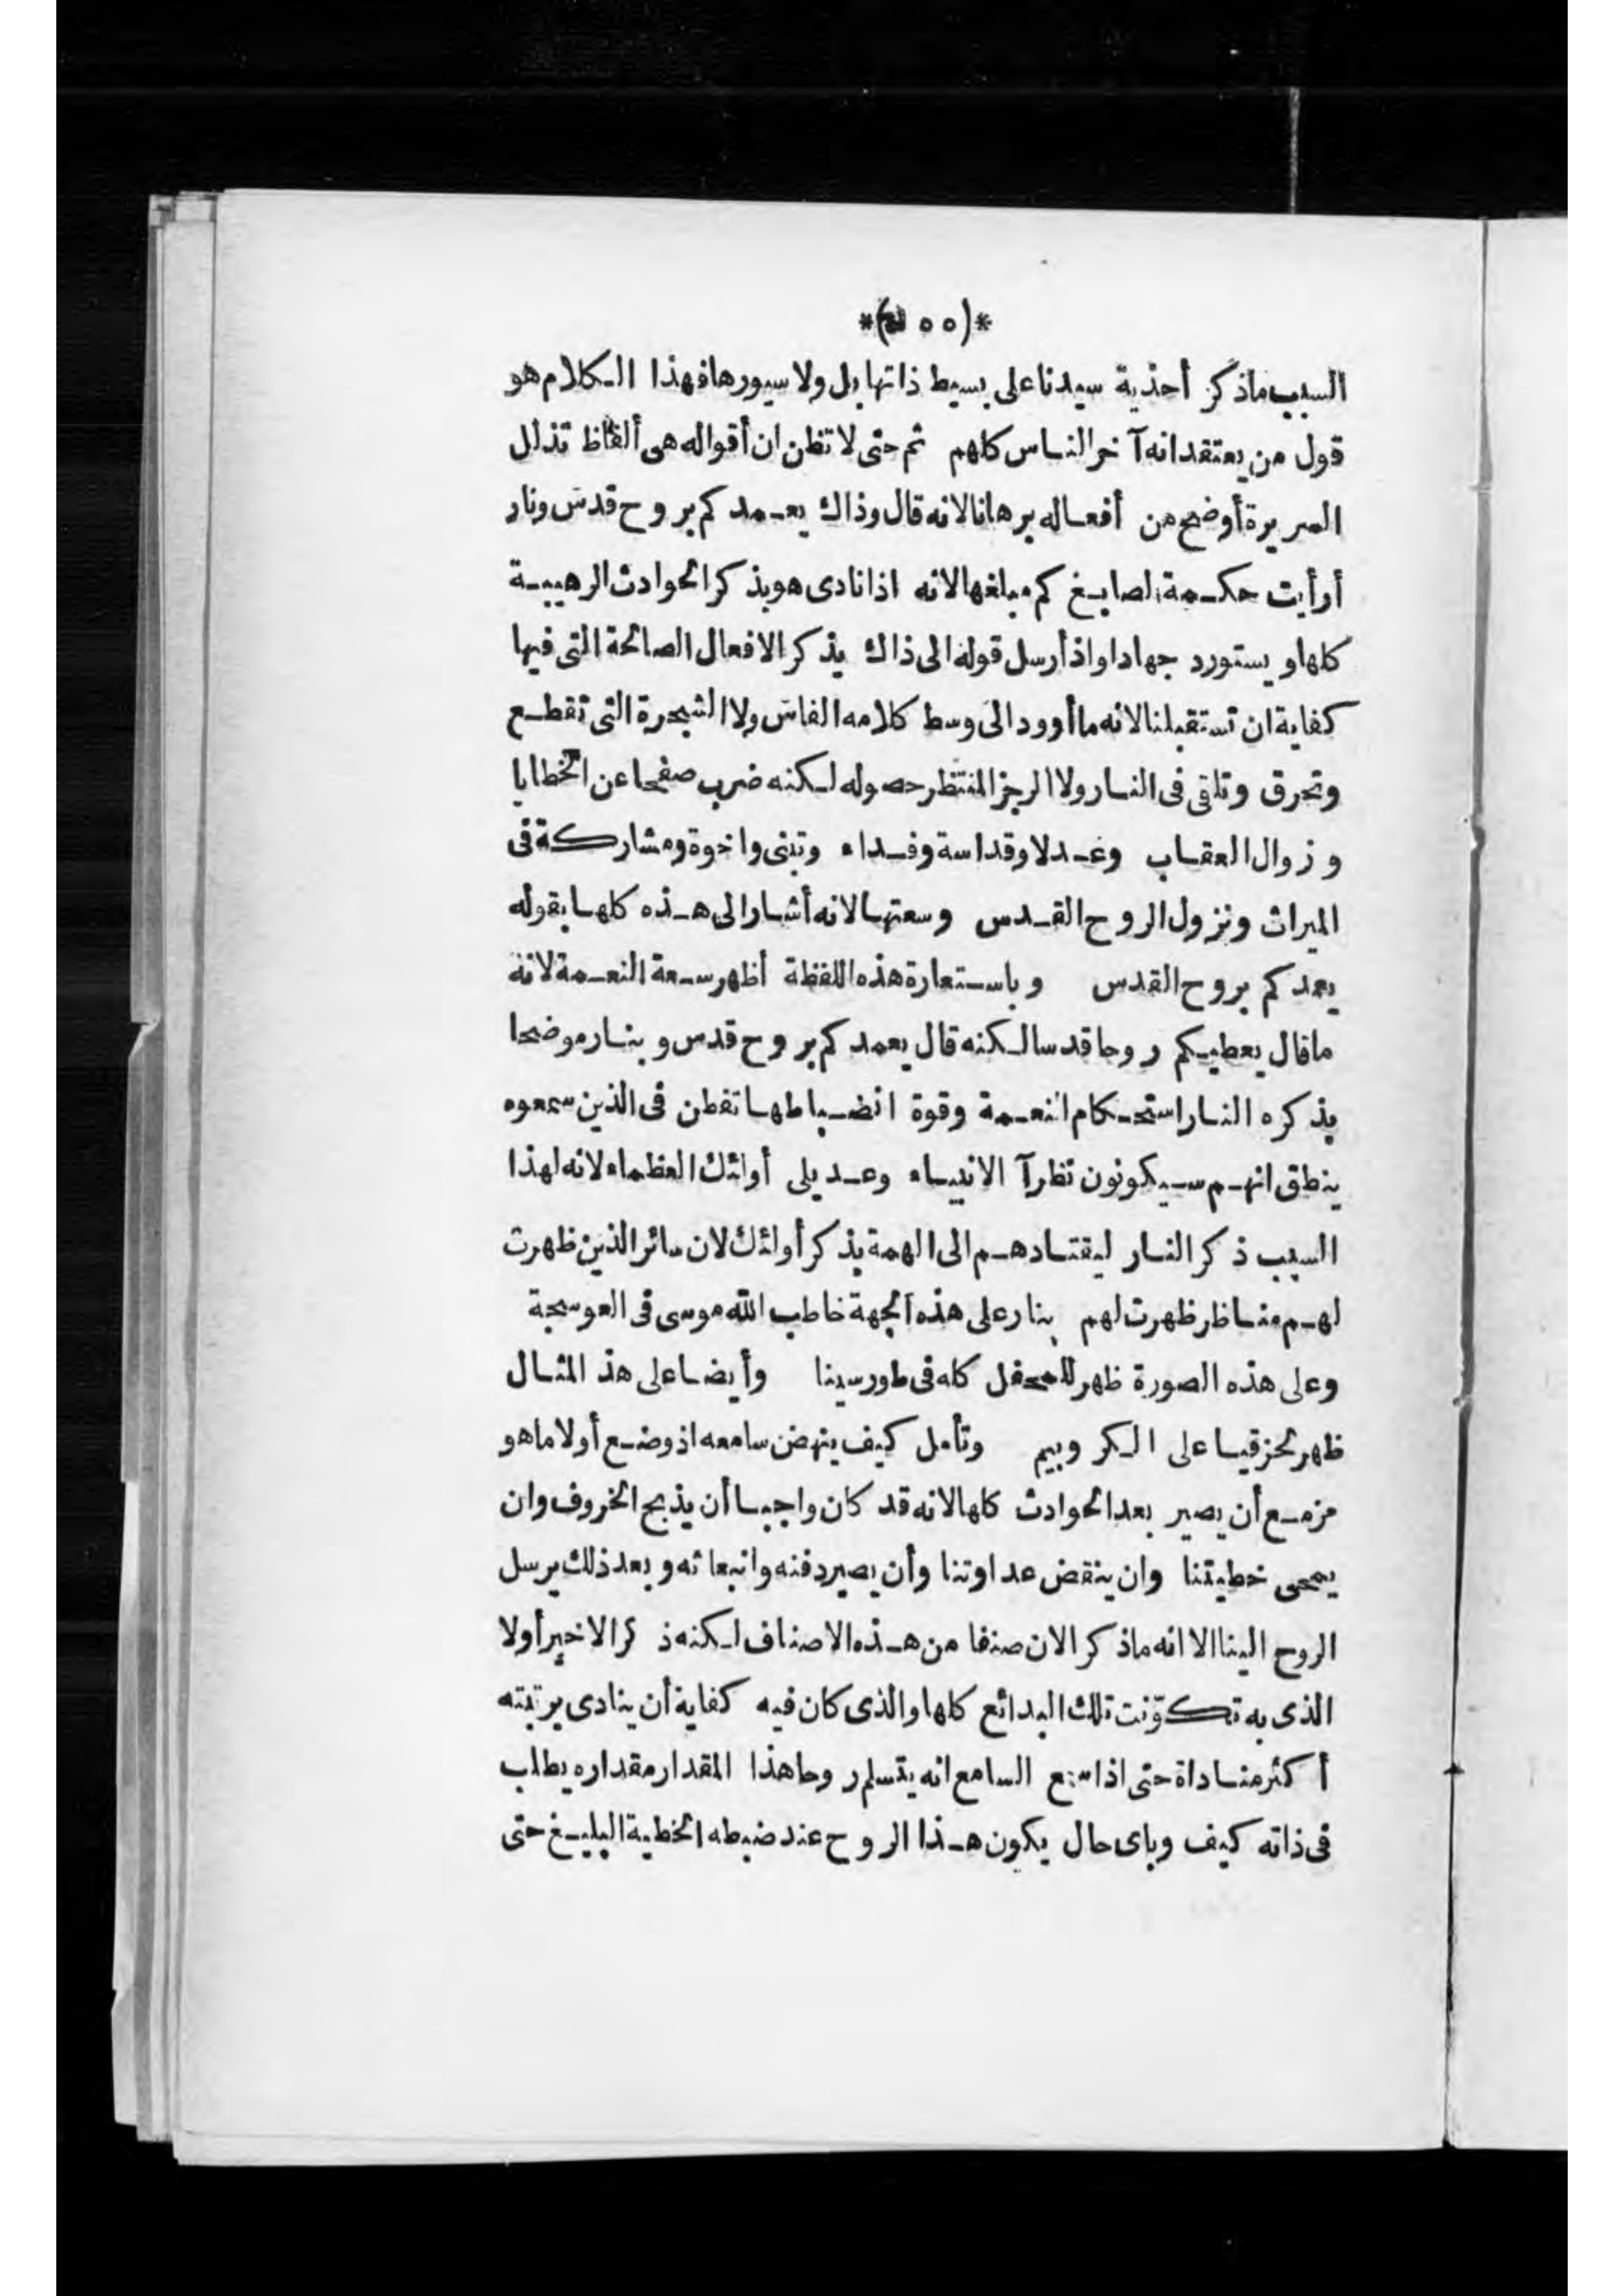 *(٥٥)*
السبب ماذكر أحذية سيدنا على بسيط ذاتها بل ولا سيورها فهذا الكلام هو
قول من يعتقد انه آخر الناس كلهم ثم حتى لا تظن ان أقواله هى ألفاظ تذلل
السريرة أوضح من أفعاله برهانا لانه قال وذاك يعمدكم بروح قدس ونار
أرأيت حكمة الصابغ كم مبلغها لانه اذا نادى هو بذكر الحوادث الرهيبة
كلها ويستورد جهادا واذ أرسل قوله الى ذاك يذكر الافعال الصالحة التى فيها
كفاية ان تستقبلنا لانه ما أورد الى وسط كلامه الفاس ولا الشجرة التى تقطع
وتحرق وتلقى فى النار ولا الرجز المنتظر حصوله لكنه ضرب صفحا عن الخطايا
وزوال العقاب وعدلا وقداسة وفداء وتبنى واخوة ومشاركة فى
الميراث ونزول الروح القدس وسعتها لانه أشار الى هذه كلها بقوله
يعمدكم بروح القدس وباستعارة هذه اللفظة أظهر سعة النعمة لانه
ماقال يعطيكم روحا قدسا لكنه قال يعمدكم بروح قدس وبنار موضحا
بذكره النار استحكام النعمة وقوة انضباطها تفطن فى الذين سمعوه
ينطق انهم سيكونون نظرآ الانبياء وعديلى أولئك العظماء لانه لهذا
السبب ذكر النار ليقتادهم الى الهمة بذكر أولئك لان سائر الذين ظهرت
لهم مناظر ظهرت لهم بنار على هذه الجهة خاطب الله موسى فى العوسجة
وعلى هذه الصورة ظهر للمحفل كله فى طور سينا وأيضا على هذ المثال
ظهر لحزقيا على الكروبيم وتأمل كيف ينهض سامعه اذ وضع أولا ماهو
مزمع أن يصير بعد الحوادث كلها لانه قد كان واجبا أن يذبح الخروف وان
يمحى خطيتنا وان ينقض عداوتنا وأن يصير دفنه وانبعاثه وبعد ذلك يرسل
الروح الينا الا انه ماذكر الان صنفا من هذه الاصناف لكنه ذكر الاخير أولا
الذى به تكوّنت تلك البدائع كلها والذى كان فيه كفاية أن ينادى برتبته
أكثر مناداة حتى اذا سمع السامع انه يتسلم روحا هذا المقدار مقداره يطلب
فى ذاته كيف وباى حال يكون هذا الروح عند ضبطه الخطية البليغ حتى